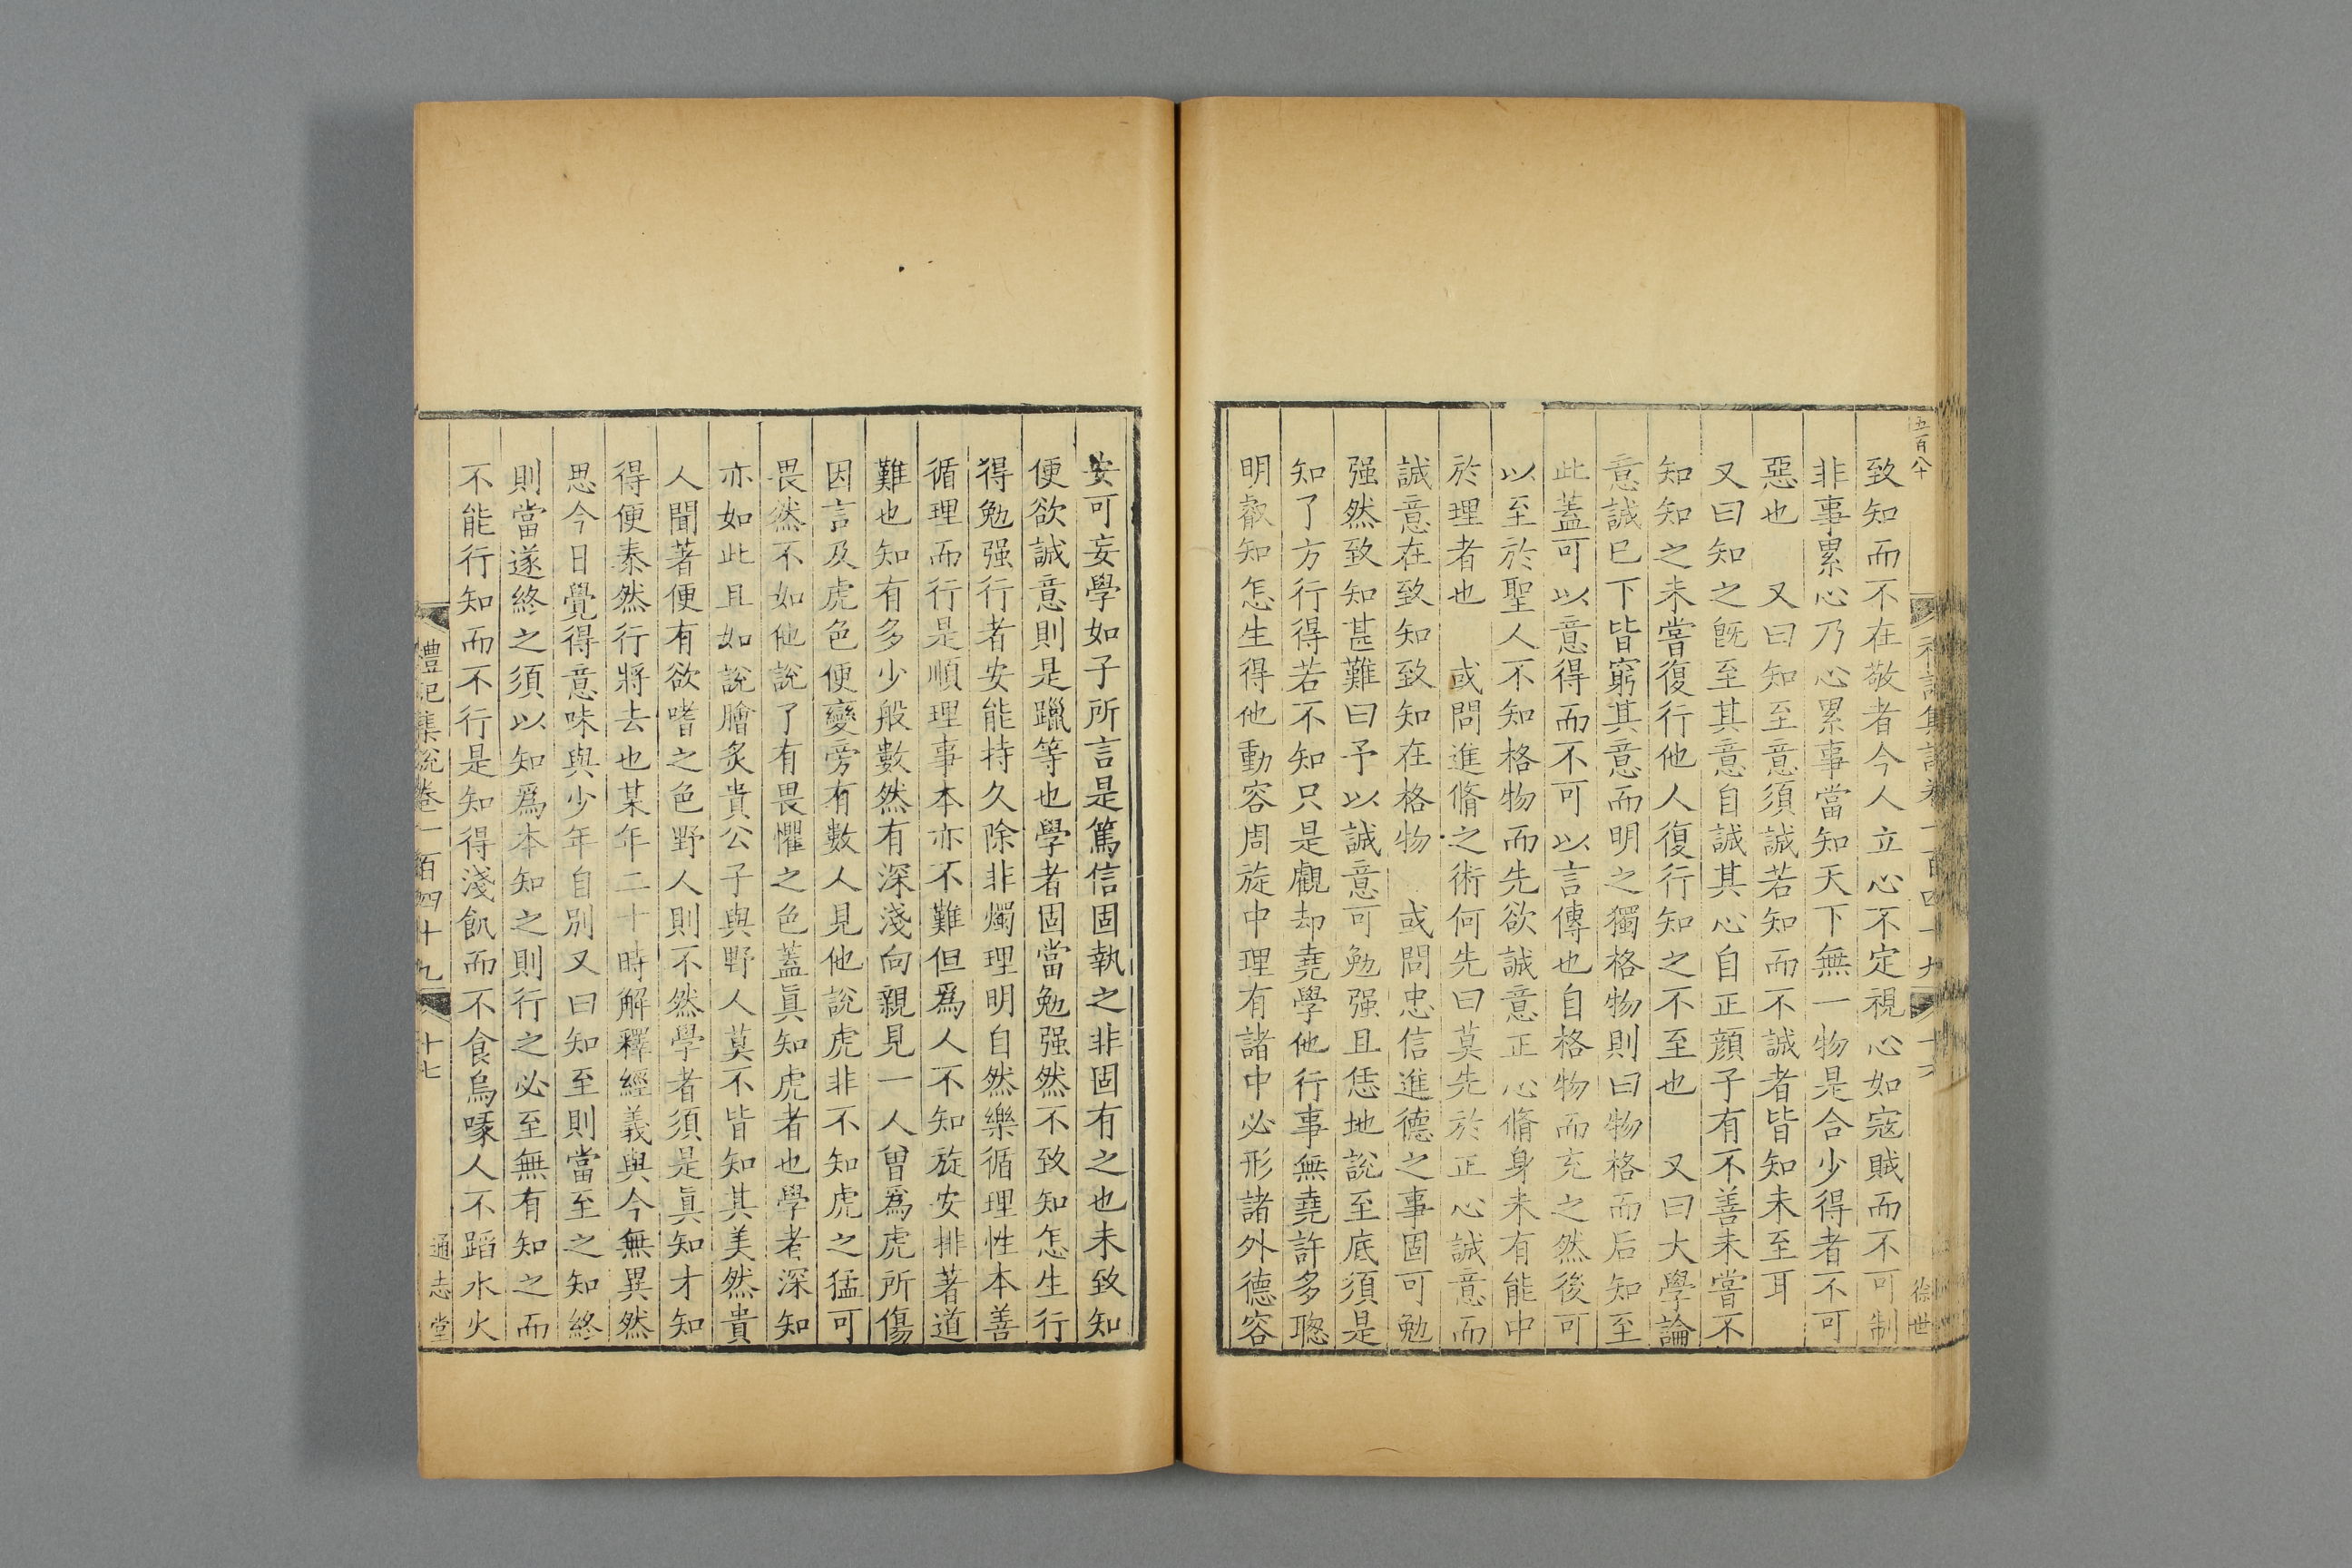 五百八十
致知而不在敬者今人立心不定視心如寇賊而不可制
非事累心乃心累事當知天下無一物是合少得者不可
惡也　又曰知至意須誠若知而不誠者皆知未至耳
又曰知之旣至其意自誠其心自正顔子有不善未嘗不
知知之未嘗復行他人復行知之不至也　又曰大學論
意誠已下皆窮其意而明之獨格物則曰物格而后知至
此蓋可以意得而不可以言傳也自格物而充之然後可
以至於聖人不知格物而先欲誠意正心脩身未有能中
於理者也　或問進脩之術何先曰莫先於正心誠意而
誠意在致知致知在格物　或問忠信進德之事固可勉
强然致知甚難曰予以誠意可勉强且恁地說至底須是
知了方行得若不知只是覷却堯學他行事無堯許多聦
明叡知怎生得他動容周旋中理有諸中必形諸外德容
徐世
安可妄學如子所言是篤信固執之非固有之也未致知
便欲誠意則是躐等也學者固當勉强然不致知怎生行
得勉强行者安能持久除非燭理明自然樂循理性本善
循理而行是順理事本亦不難但爲人不知旋安排著道
難也知有多少般數然有深淺向親見一人曽爲虎所傷
因言及虎色便變旁有數人見他說虎非不知虎之猛可
畏然不如他說了有畏懼之色蓋眞知虎者也學者深知
亦如此且如說膾炙貴公子與野人莫不皆知其美然貴
人聞著便有欲嗜之色野人則不然學者須是眞知才知
得便泰然行將去也某年二十時解釋經義與今無異然
思今日覺得意味與少年自別又曰知至則當至之知終
則當遂終之須以知爲本知之則行之必至無有知之而
不能行知而不行是知得淺飢而不食烏喙人不蹈水火
禮記集説卷一百四十九　十七
通志堂